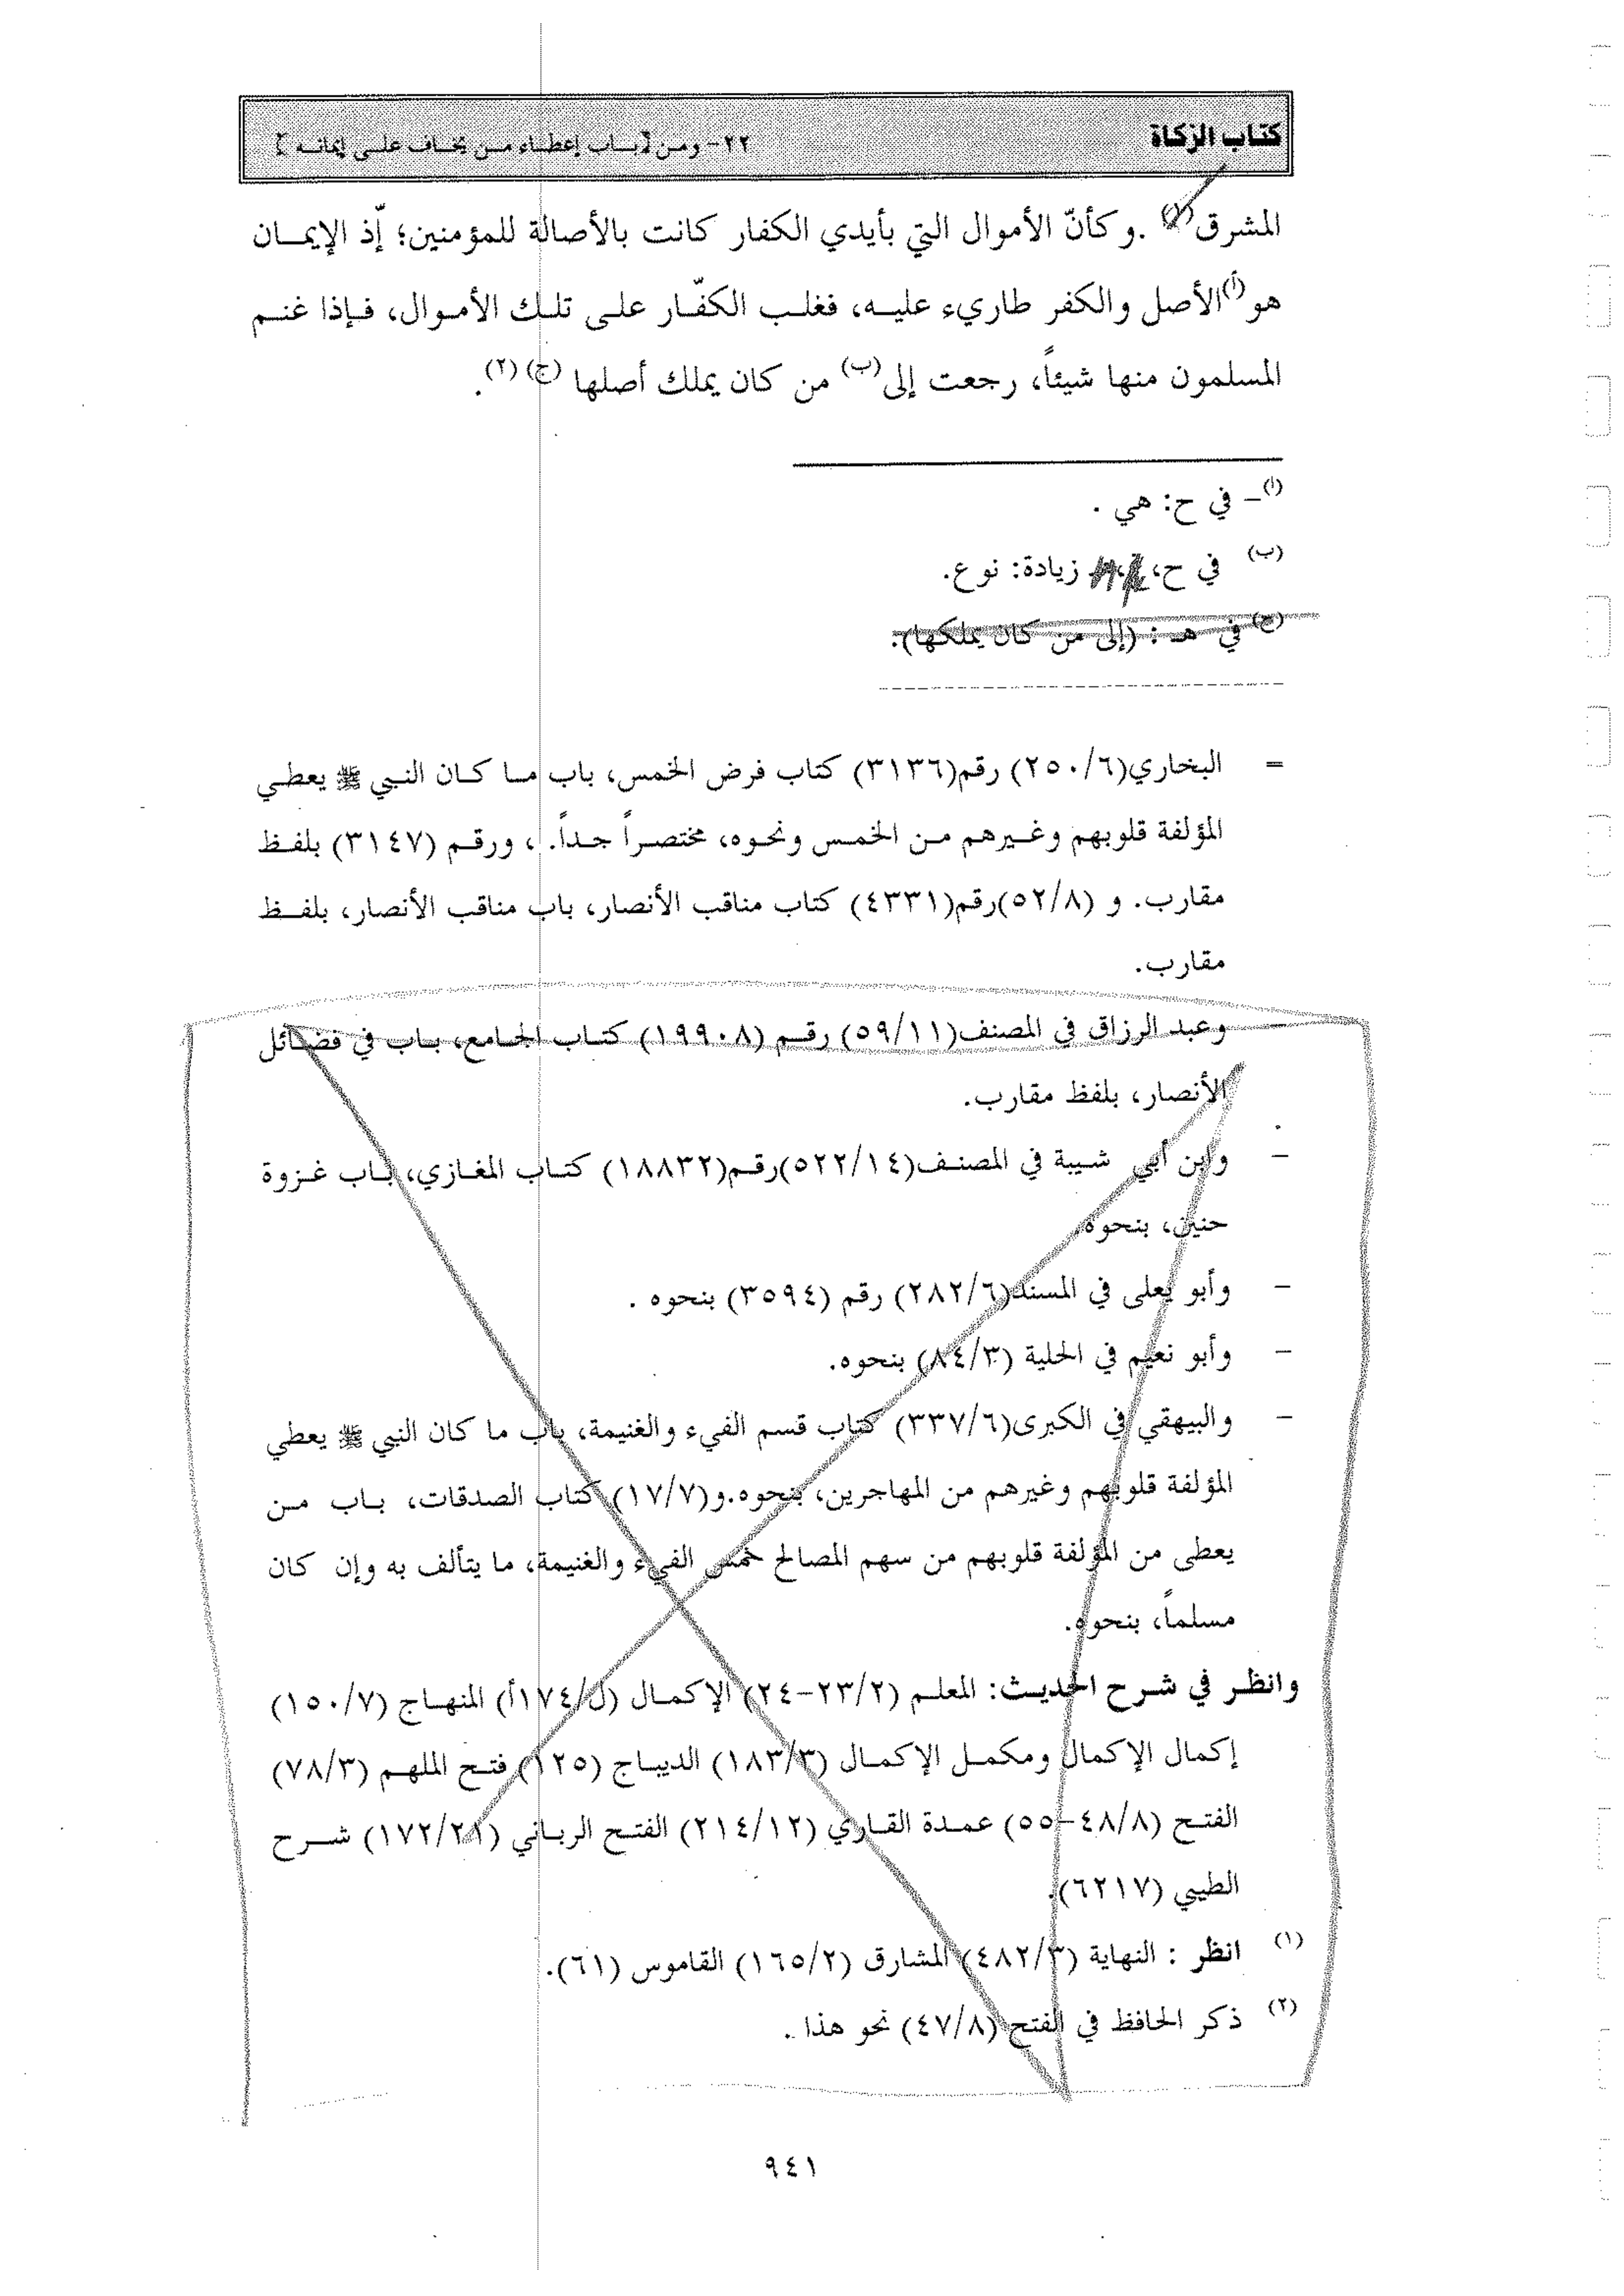 كتاب الزكاة
٢٢- ومن [باب إعطاء من يخاف على إيمانه]
المشرق(١). وكأنّ الأموال التي بأيدي الكفار كانت بالأصالة للمؤمنين؛ إذ الإيمان
هو(أ) الأصل والكفر طاريء عليه، فغلب الكفّار على تلك الأموال، فإذا غنم
المسلمون منها شيئاً، رجعت إلى(ب) من كان يملك أصلها (ج) (٢).
(أ)- في ح: هي .
(ب) في ح، زيادة: نوع.
(ج) في هـ : (إلى من كان يملكها).
= البخاري(٢٥٠/٦) رقم(٣١٣٦) كتاب فرض الخمس، باب ما كان النبي ﷺ يعطي
المؤلفة قلوبهم وغيرهم من الخمس ونحوه، مختصراً جداً. ، ورقم (٣١٤٧) بلفظ
مقارب. و (٥٢/٨)رقم(٤٣٣١) كتاب مناقب الأنصار، باب مناقب الأنصار، بلفظ
مقارب.
– وعبد الرزاق في المصنف(٥٩/١١) رقم (١٩٩٠٨) كتاب الجامع، باب في فضائل
الأنصار، بلفظ مقارب.
– وابن أبي شيبة في المصنف(٥٢٢/١٤)رقم(١٨٨٣٢) كتاب المغازي، باب غزوة
حنين، بنحوه.
– وأبو يعلى في المسند(٢٨٢/٦) رقم (٣٥٩٤) بنحوه .
– وأبو نعيم في الحلية (٨٤/٣) بنحوه.
– والبيهقي في الكبرى(٣٣٧/٦) كتاب قسم الفيء والغنيمة، باب ما كان النبي ﷺ يعطي
المؤلفة قلوبهم وغيرهم من المهاجرين، بنحوه.و(١٧/٧) كتاب الصدقات، باب من
يعطى من المؤلفة قلوبهم من سهم المصالح خمس الفيء والغنيمة، ما يتألف به وإن كان
مسلماً، بنحوه.
وانظر في شرح الحديث: المعلم (٢٣/٢-٢٤) الإكمال (ل/١٧٤أ) المنهاج (١٥٠/٧)
إكمال الإكمال ومكمل الإكمال (١٨٣/٣) الديباج (١٢٥) فتح الملهم (٧٨/٣)
الفتح (٤٨/٨-٥٥) عمدة القاري (٢١٤/١٢) الفتح الرباني (١٧٢/٢١) شرح
الطيبي (٦٢١٧).
(١) انظر : النهاية (٤٨٢/٣) المشارق (١٦٥/٢) القاموس (٦١).
(٢) ذكر الحافظ في الفتح (٤٧/٨) نحو هذا .
٩٤١